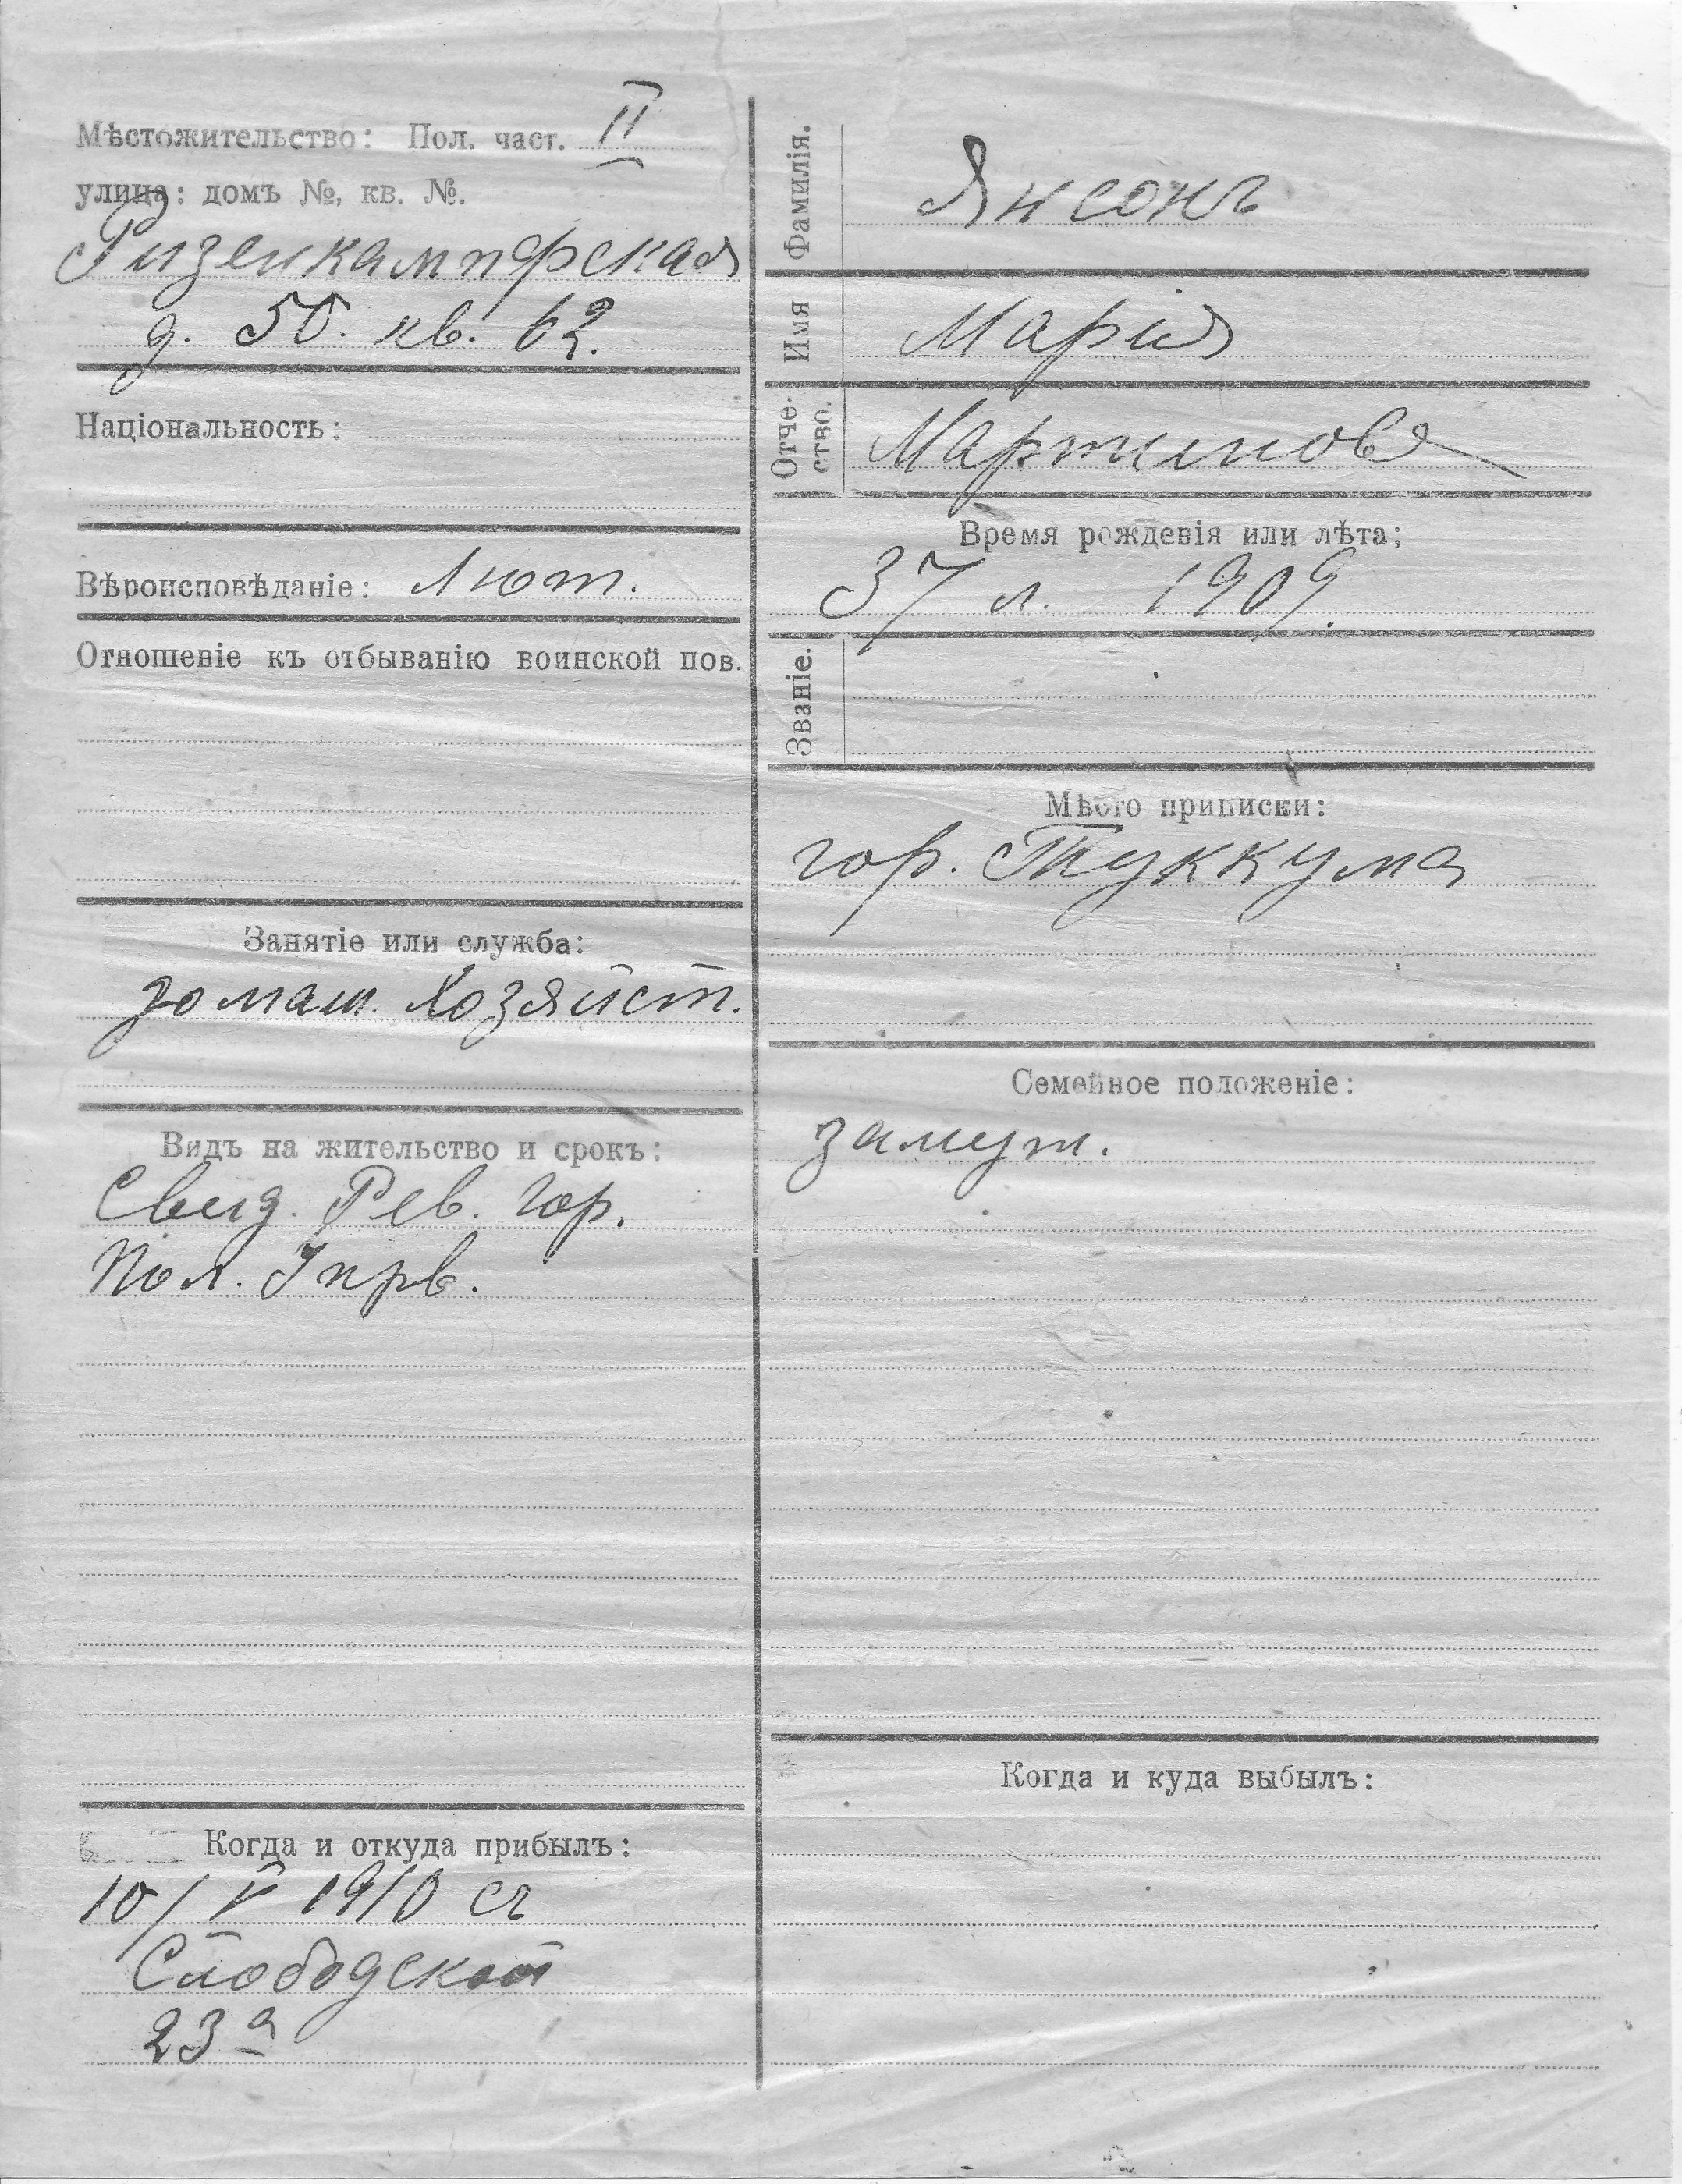 Мѣстожительство: Пол. част. II
улица: домъ №, кв. №.
Ризенкампфская
д. 50. кв. 62.
Національность:
Вѣроисповѣданіе: Лют.
Отношеніе къ отбыванію воинской пов.
Занятіе или служба:
домаш. хозяйст.
Видъ на жительство и срокъ:
Свид. Рев. Гор.
Пол. Упрв.
Когда и откуда прибылъ:
10/V 1910 съ
Слободской
23а
Фамилія.
Янсонъ
Имя
Марія
Отче-
ство.
Мартинова
Время рожденія или лѣта;
37 л. 1909.
Званіе.
Мѣсто приписки:
гор. Туккума
Семейное положеніе:
замуж.
Когда и куда выбылъ: